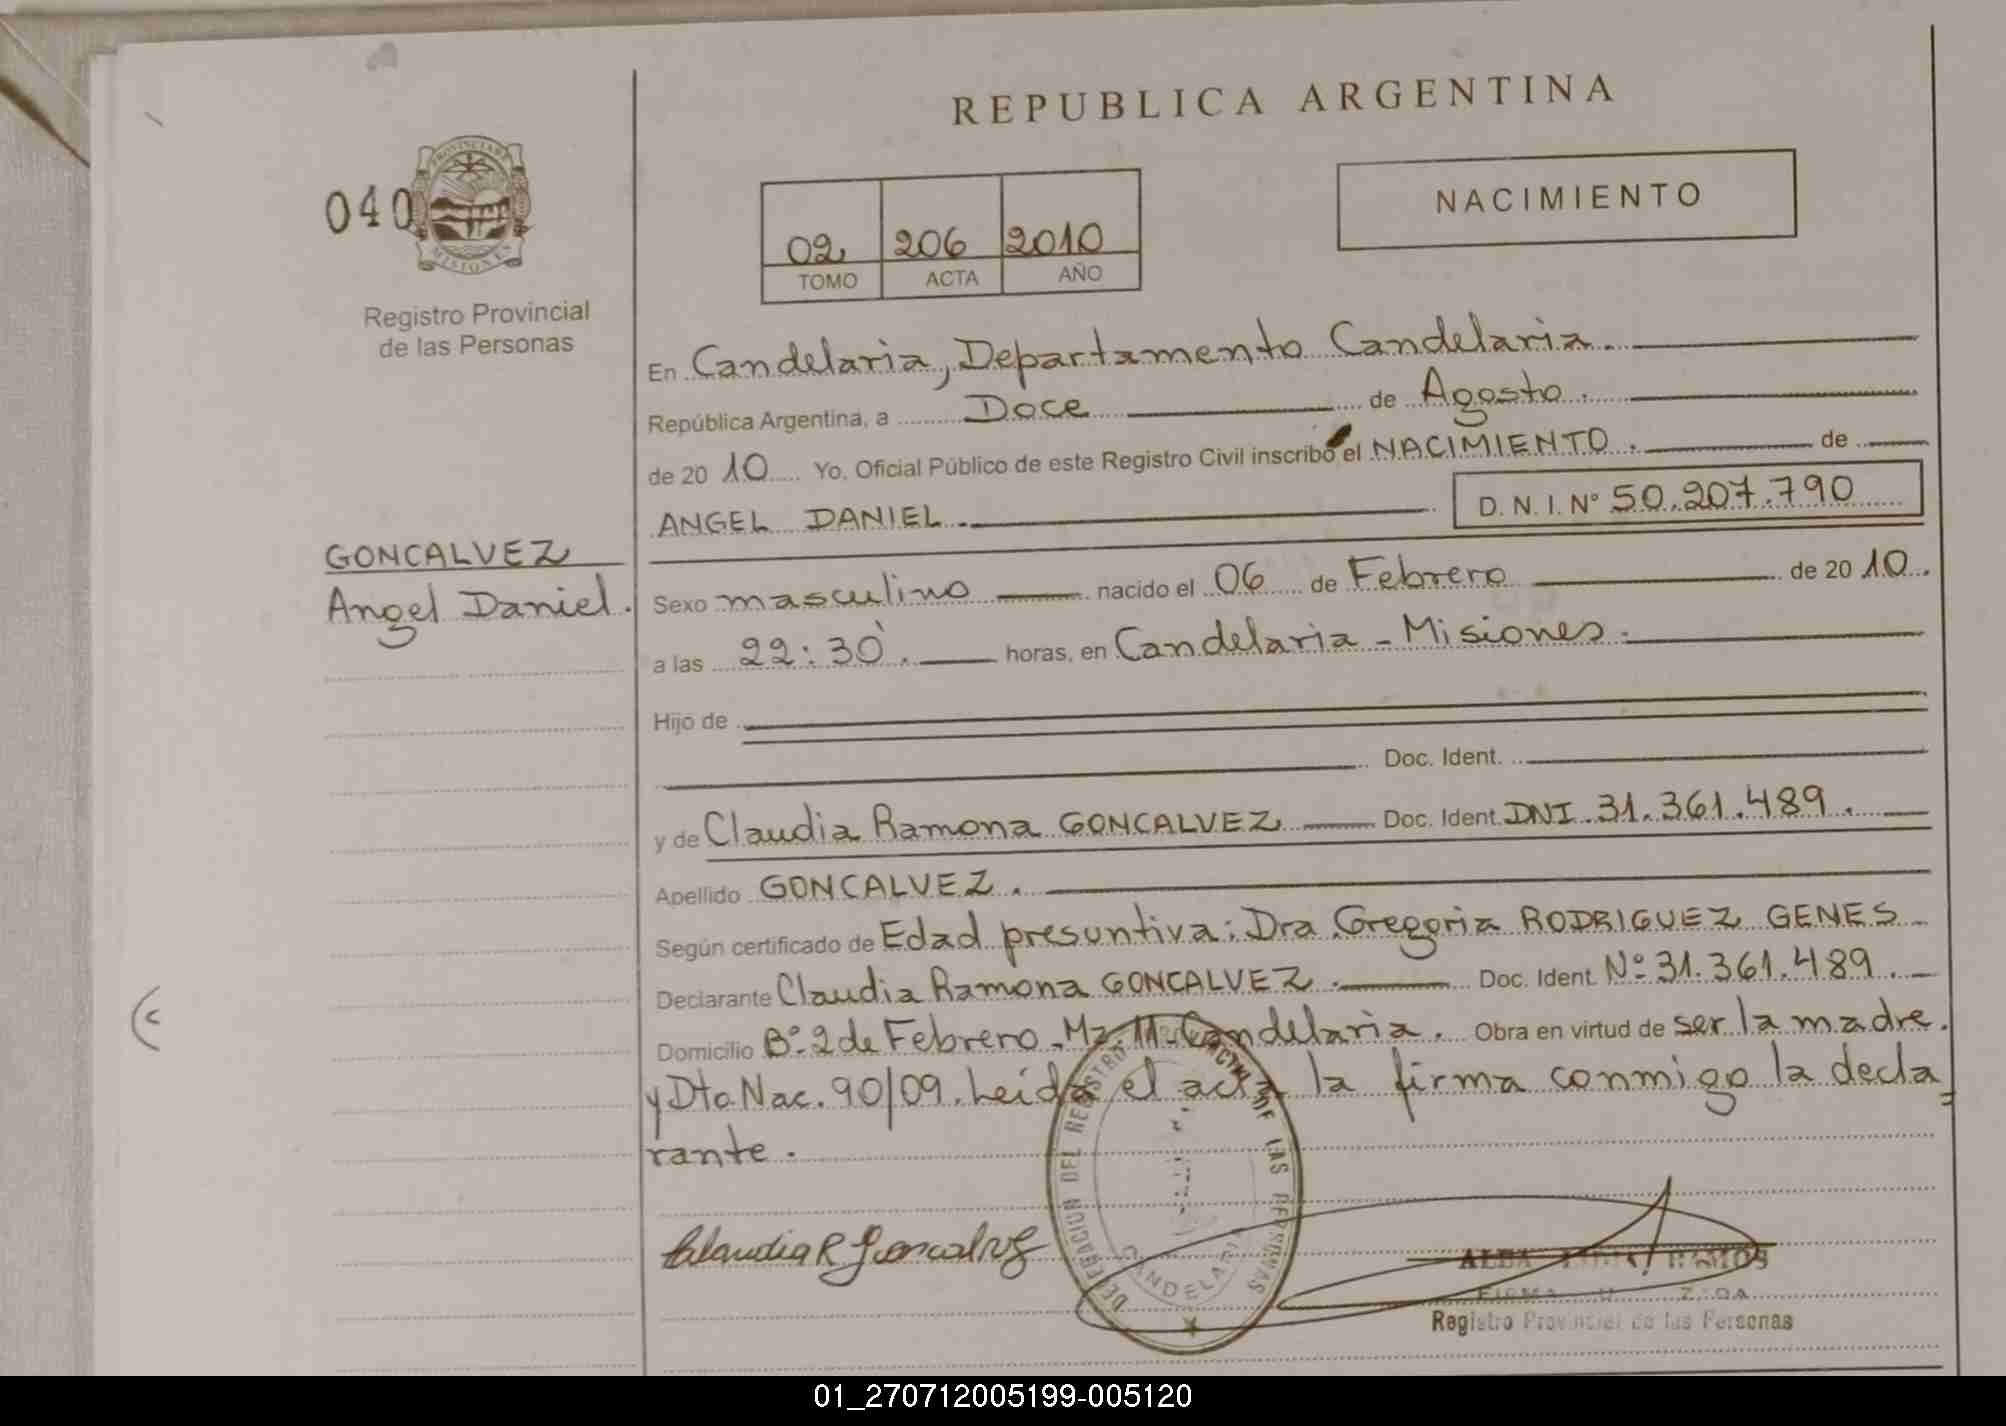 REPUBLICA ARGENTINA
040
PROVINCIA DE
MISIONES
Registro Provincial
de las Personas
02 206 2010
TOMO ACTA AÑO
NACIMIENTO
En Candelaria, Departamento Candelaria.
República Argentina, a Doce de Agosto.
de 20 10 Yo, Oficial Público de este Registro Civil inscribo el NACIMIENTO. de
ANGEL DANIEL. D. N. I. Nº 50.207.790
GONCALVEZ
Angel Daniel.
Sexo masculino nacido el 06 de Febrero de 20 10.
a las 22:30'. horas, en Candelaria - Misiones.
Hijo de
Doc. Ident.
y de Claudia Ramona GONCALVEZ Doc. Ident. DNI 31.361.489.
Apellido GONCALVEZ.
Según certificado de Edad presuntiva: Dra. Gregoria RODRIGUEZ GENES
Declarante Claudia Ramona GONCALVEZ. Doc. Ident. Nº 31.361.489.
Domicilio Bº 2 de Febrero - Mz. 11 - Candelaria. Obra en virtud de ser la madre.
y Dto Nac. 90/09. Leída el acta la firma conmigo la decla=
rante.
DELEGACION DEL REGISTRO DE LAS PERSONAS
CANDELARIA
Claudia R Goncalvez
ALBA RAMOS
FIRMA
Registro Provincial de las Personas
01_270712005199-005120